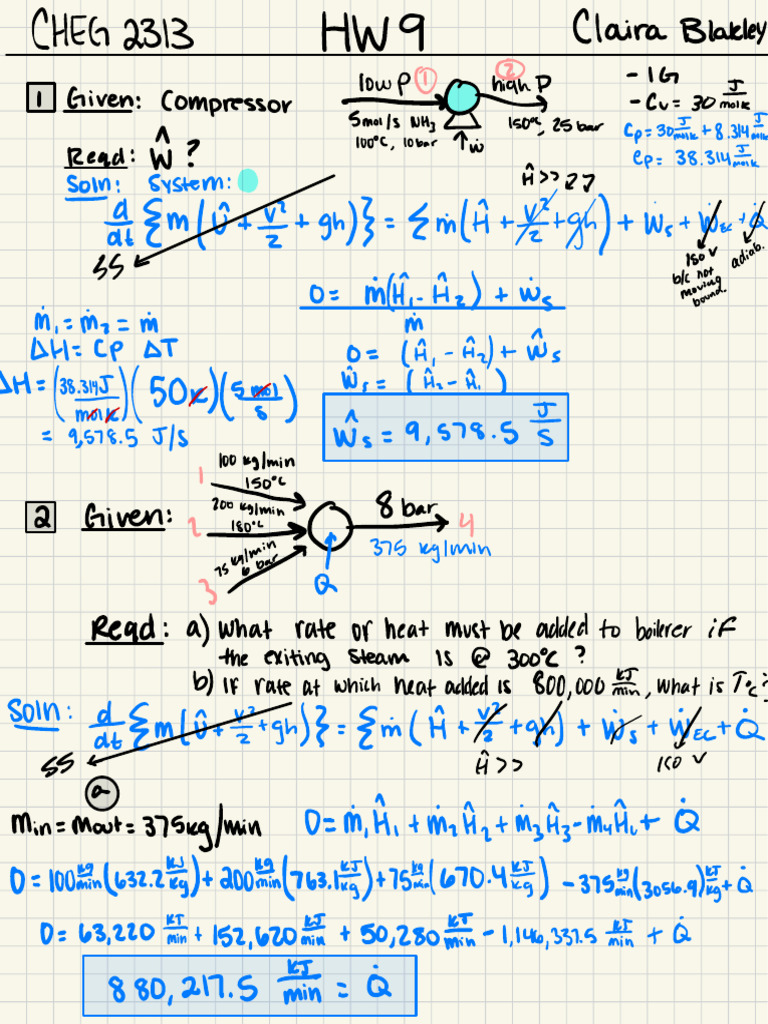 CHEG 2313 HW 9 Claira Blakley
1 Given: Compressor
low P 1 high P 2
5mol/s NH3 150°C, 25 bar
100°C, 10bar ẇ
- IG
- Cv = 30 J/molk
Cp = 30 J/molk + 8.314 J/molk
Cp = 38.314 J/molk
Reqd: Ŵ ?
Soln: System:
Ĥ >>
d/dt {m(Û + v²/2 + gh)} = {ṁ(Ĥ + v²/2 + gh)} + Ẇs + ẆEC + Q̇
SS
ISO V
b/c not
moving
bound.
adiab.
0 = ṁ(Ĥ1 - Ĥ2) + ẇs
ṁ
ṁ1 = ṁ2 = ṁ
ΔH = CP ΔT
0 = (Ĥ1 - Ĥ2) + Ŵs
Ŵs = (Ĥ2 - Ĥ1)
ΔH = (38.314J/molk)(50k)(5mol/s)
= 9,578.5 J/s
Ŵs = 9,578.5 J/s
2 Given:
1 100 kg/min
150°C
2 200 kg/min
180°C
3 75 kg/min
6 bar
Q
8 bar 4
375 kg/min
Reqd: a) what rate or heat must be added to boilerer if
the exiting steam is @ 300°C ?
b) If rate at which heat added is 800,000 KJ/min, what is T°C?
Soln: d/dt {m(Û + v²/2 + gh)} = {ṁ(Ĥ + v²/2 + gh) + Ẇs + ẆEC + Q̇
SS Ĥ >> ISO V
a
Min = Mout = 375kg/min 0 = ṁ1Ĥ1 + ṁ2Ĥ2 + ṁ3Ĥ3 - ṁ4Ĥ4 + Q̇
0 = 100 kg/min (632.2 KJ/kg) + 200 kg/min (763.1 KJ/kg) + 75 kg/min (670.4 KJ/kg) - 375 kg/min (3056.9) KJ/kg + Q̇
0 = 63,220 KJ/min + 152,620 KJ/min + 50,280 KJ/min - 1,146,337.5 KJ/min + Q̇
880,217.5 KJ/min = Q̇